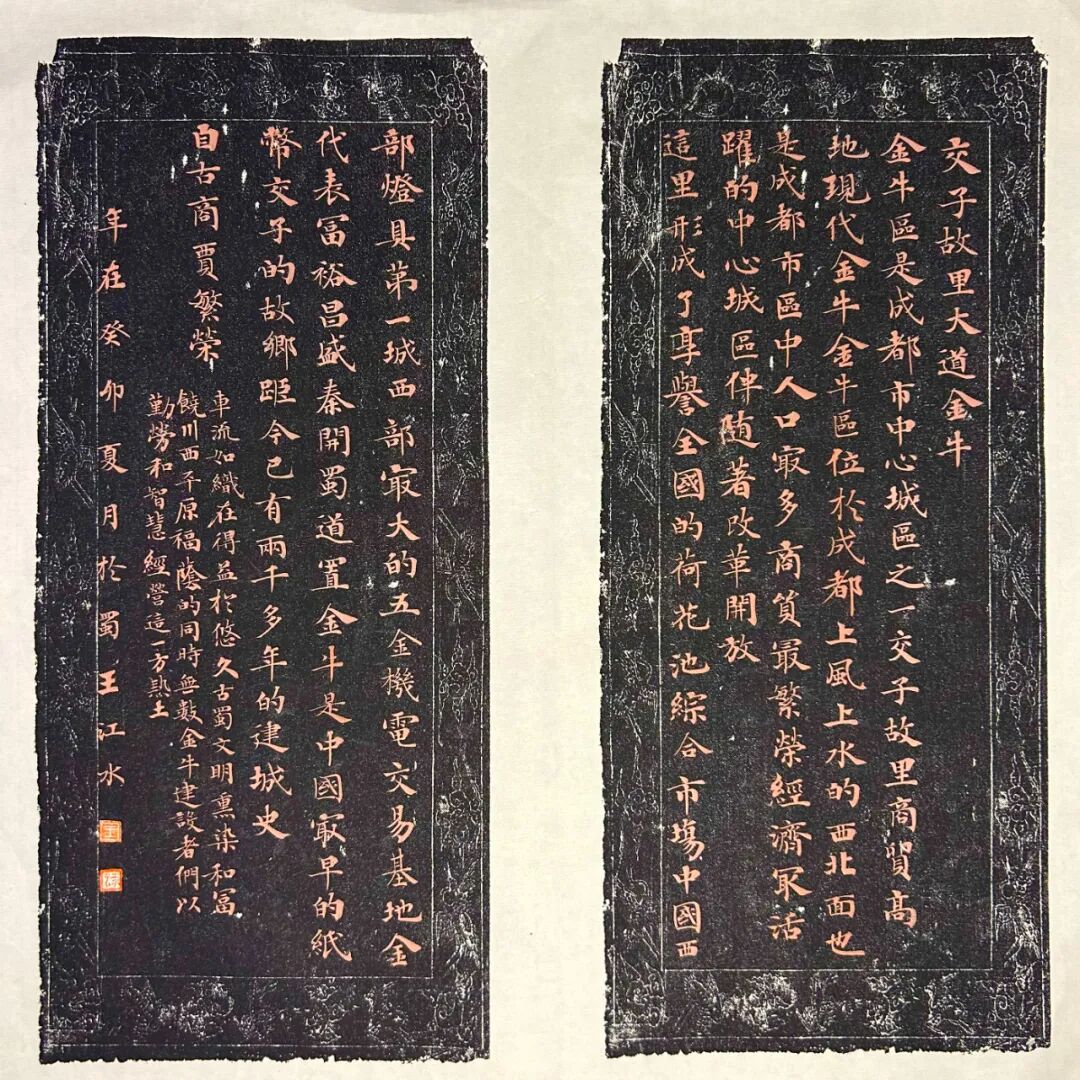 交子故里大道金牛
金牛區是成都市中心城區之一交子故里商貿高
地現代金牛金牛區位於成都上風上水的西北面也
是成都市區中人口㝡多商貿最繁榮經濟㝡活
躍的中心城區伴随著改革開放
這里形成了享譽全國的荷花池綜合市場中國西
部燈具第一城西部㝡大的五金機電交易基地金
代表富裕昌盛秦開蜀道置金牛是中國㝡早的紙
幣交子的故鄉距今已有兩千多年的建城史
自古商賈繁榮
車流如織在得益於悠久古蜀文明熏染和富
饒川西平原福蔭的同時無數金牛建設者們以
勤勞和智慧經營這一方熱土
年在癸卯夏月於蜀王江水